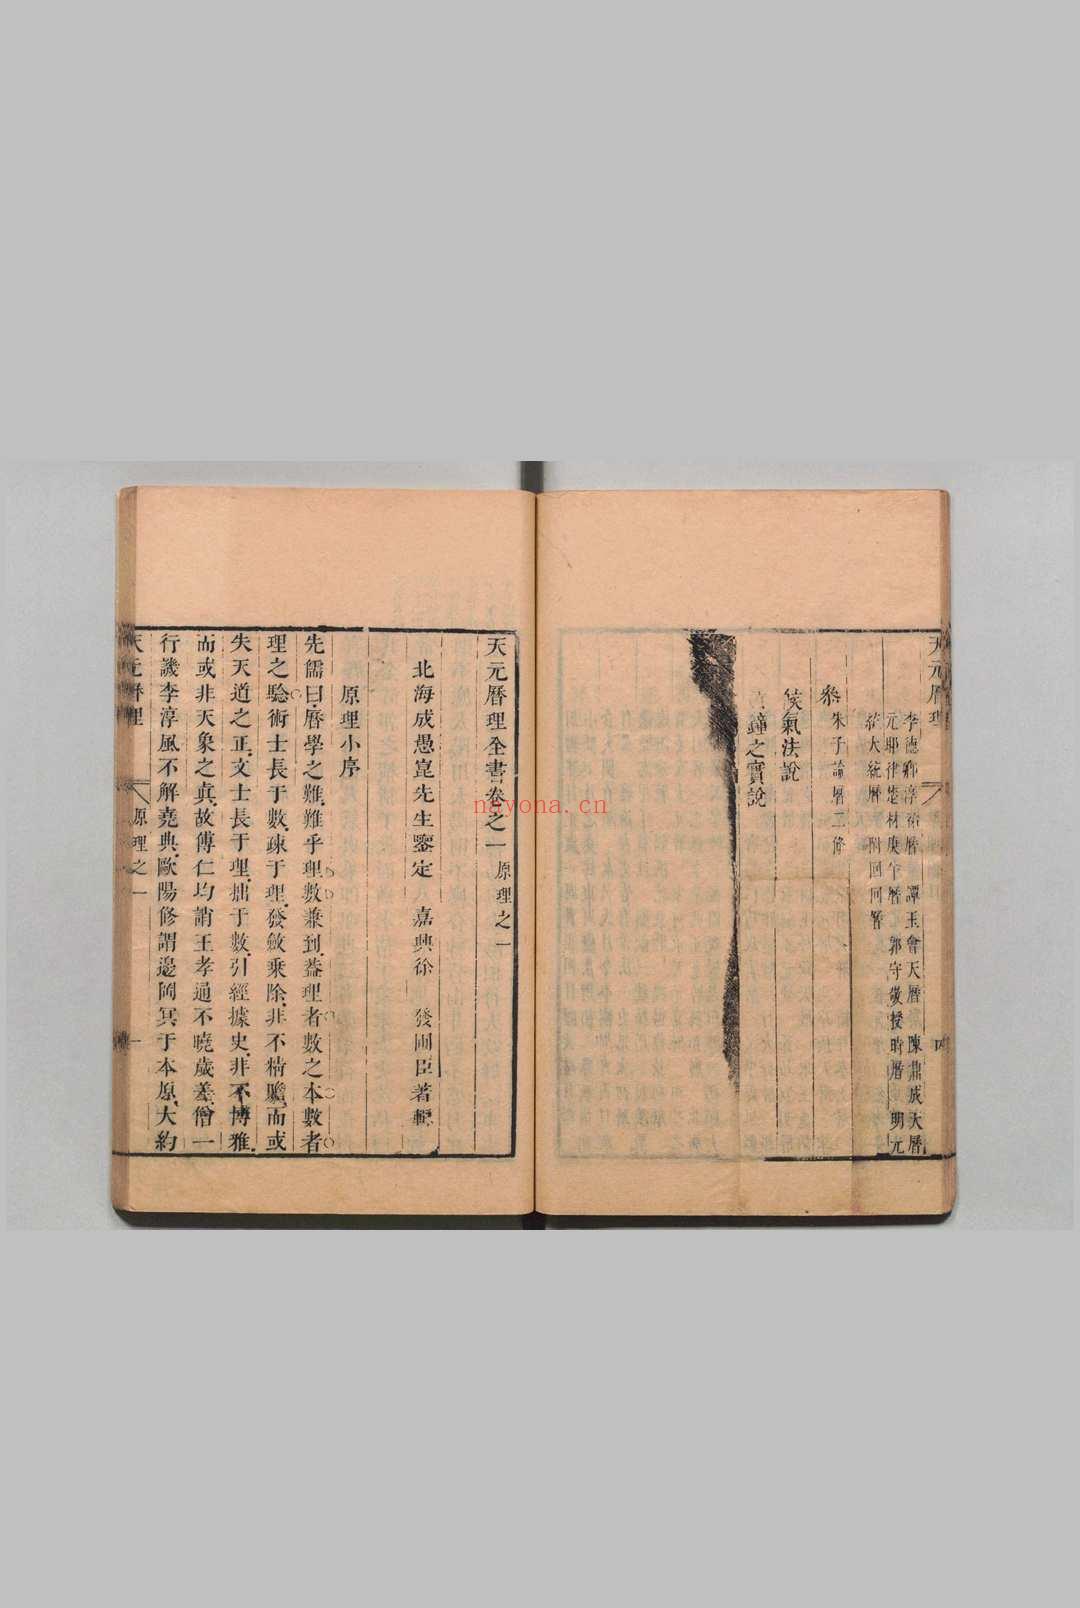 天元曆理
李德卿淳祐曆 譚玉會天曆 陳鼎成天曆
元耶律楚材庚午曆 郭守敬授時曆 明元
統大統曆 附回回曆
朱子論曆二條
候氣法說
黃鐘之實說
天元曆理全書卷之一 原理之一
北海成愚崑先生鑒定 嘉興徐 發圃臣著輯
原理小序
先儒曰曆學之難難乎理數兼到葢理者數之本數者
理之驗術士長于數疎于理發斂乗除非不精贍而或
失天道之正文士長于理拙于數引經據史非不博雅
而或非天象之眞故傅仁均誚王孝通不曉歲差僧一
行譏李淳風不解堯典歐陽修謂邊岡冥于本原大約
天元曆理
原理之一
一
nayona.cn